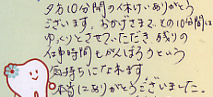 夕方10分間の休けいありがとう
ございます。おかげさまで、この10分間は
ゆっくりとさせていただき残りの
仕事時間もがんばろうという
気持ちになれます
本当にありがとうございました。